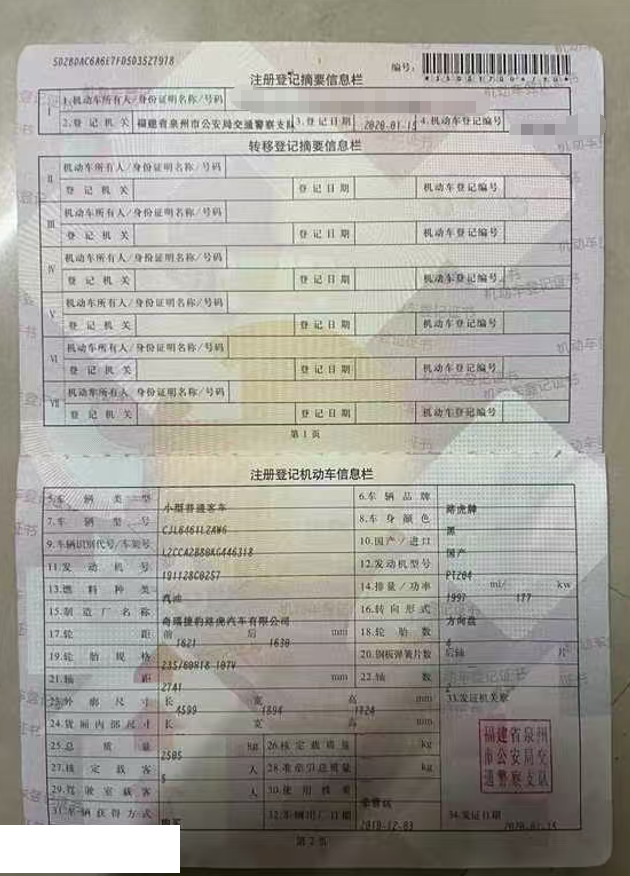 5D2BDAC6A6E7FD5D3527978
编号:
注册登记摘要信息栏
I 1.机动车所有人/身份证明名称/号码
2.登记机关 福建省泉州市公安局交通警察支队 3.登记日期 2020-01-15 4.机动车登记编号
转移登记摘要信息栏
II 机动车所有人/身份证明名称/号码
登记机关 登记日期 机动车登记编号
III 机动车所有人/身份证明名称/号码
登记机关 登记日期 机动车登记编号
IV 机动车所有人/身份证明名称/号码
登记机关 登记日期 机动车登记编号
V 机动车所有人/身份证明名称/号码
登记机关 登记日期 机动车登记编号
VI 机动车所有人/身份证明名称/号码
登记机关 登记日期 机动车登记编号
VII 机动车所有人/身份证明名称/号码
登记机关 登记日期 机动车登记编号
第1页
注册登记机动车信息栏
5.车辆类型 小型普通客车 6.车辆品牌 路虎牌
7.车辆型号 CJL6461L2AW6 8.车身颜色 黑
9.车辆识别代号/车架号 10.国产/进口 国产
11.发动机号 191128C0257 12.发动机型号 PT204
13.燃料种类 汽油 14.排量/功率 1997 ml/ 177 kw
15.制造厂名称 奇瑞捷豹路虎汽车有限公司 16.转向形式 方向盘
17.轮距 前 1621 后 1630 mm 18.轮胎数 4
19.轮胎规格 235/60R18 107V 20.钢板弹簧片数 后轴 片
21.轴距 2741 mm 22.轴数 2
23.外廓尺寸 长 宽 高 mm 33.发证机关章
24.货厢内部尺寸 长 宽 高 mm
25.总质量 2505 kg 26.核定载质量 kg
27.核定载客 5 人 28.准牵引总质量 kg
29.驾驶室载客 人 30.使用性质 非营运
31.车辆获得方式 购买 32.车辆出厂日期 2019-12-03 34.发证日期 2020-01-15
福建省泉州
市公安局交
通警察支队
第2页